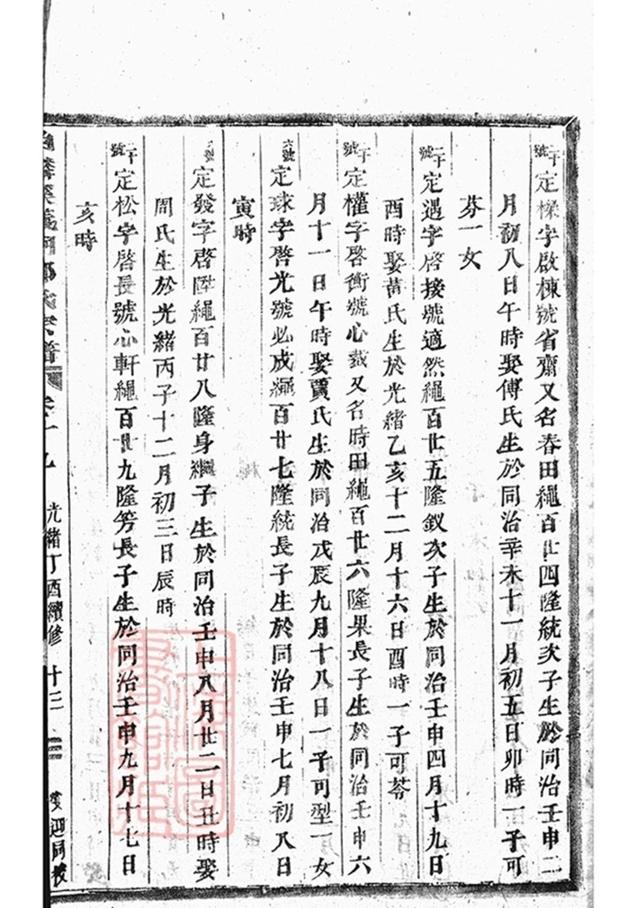 二千號 定樑字啟棟號省齋又名春田繩百廿四隆統次子生於同治壬申二
月初八日午時娶傅氏生於同治辛未十一月初五日卯時一子可
芬一女
二千號 定遇字啓接號適然繩百廿五隆釵次子生於同治壬申四月十九日
酉時娶黃氏生於光緒乙亥十二月十六日酉時一子可苓
二千號 定權字啓衡號心裁又名時田繩百廿六隆果長子生於同治壬申六
月十一日午時娶賈氏生於同治戊辰九月十八日一子可型一女
六號 定球字啓光號必成繩百廿七隆統長子生於同治壬申七月初八日
寅時
號 定發字啓陞繩百廿八隆身繼子生於同治壬申八月廿二日丑時娶
周氏生於光緒丙子十二月初三日辰時
二千號 定松字啓長號心軒繩百廿九隆芳長子生於同治壬申九月十七日
亥時
卷十九 光緒丁酉續修 十三 迎同校